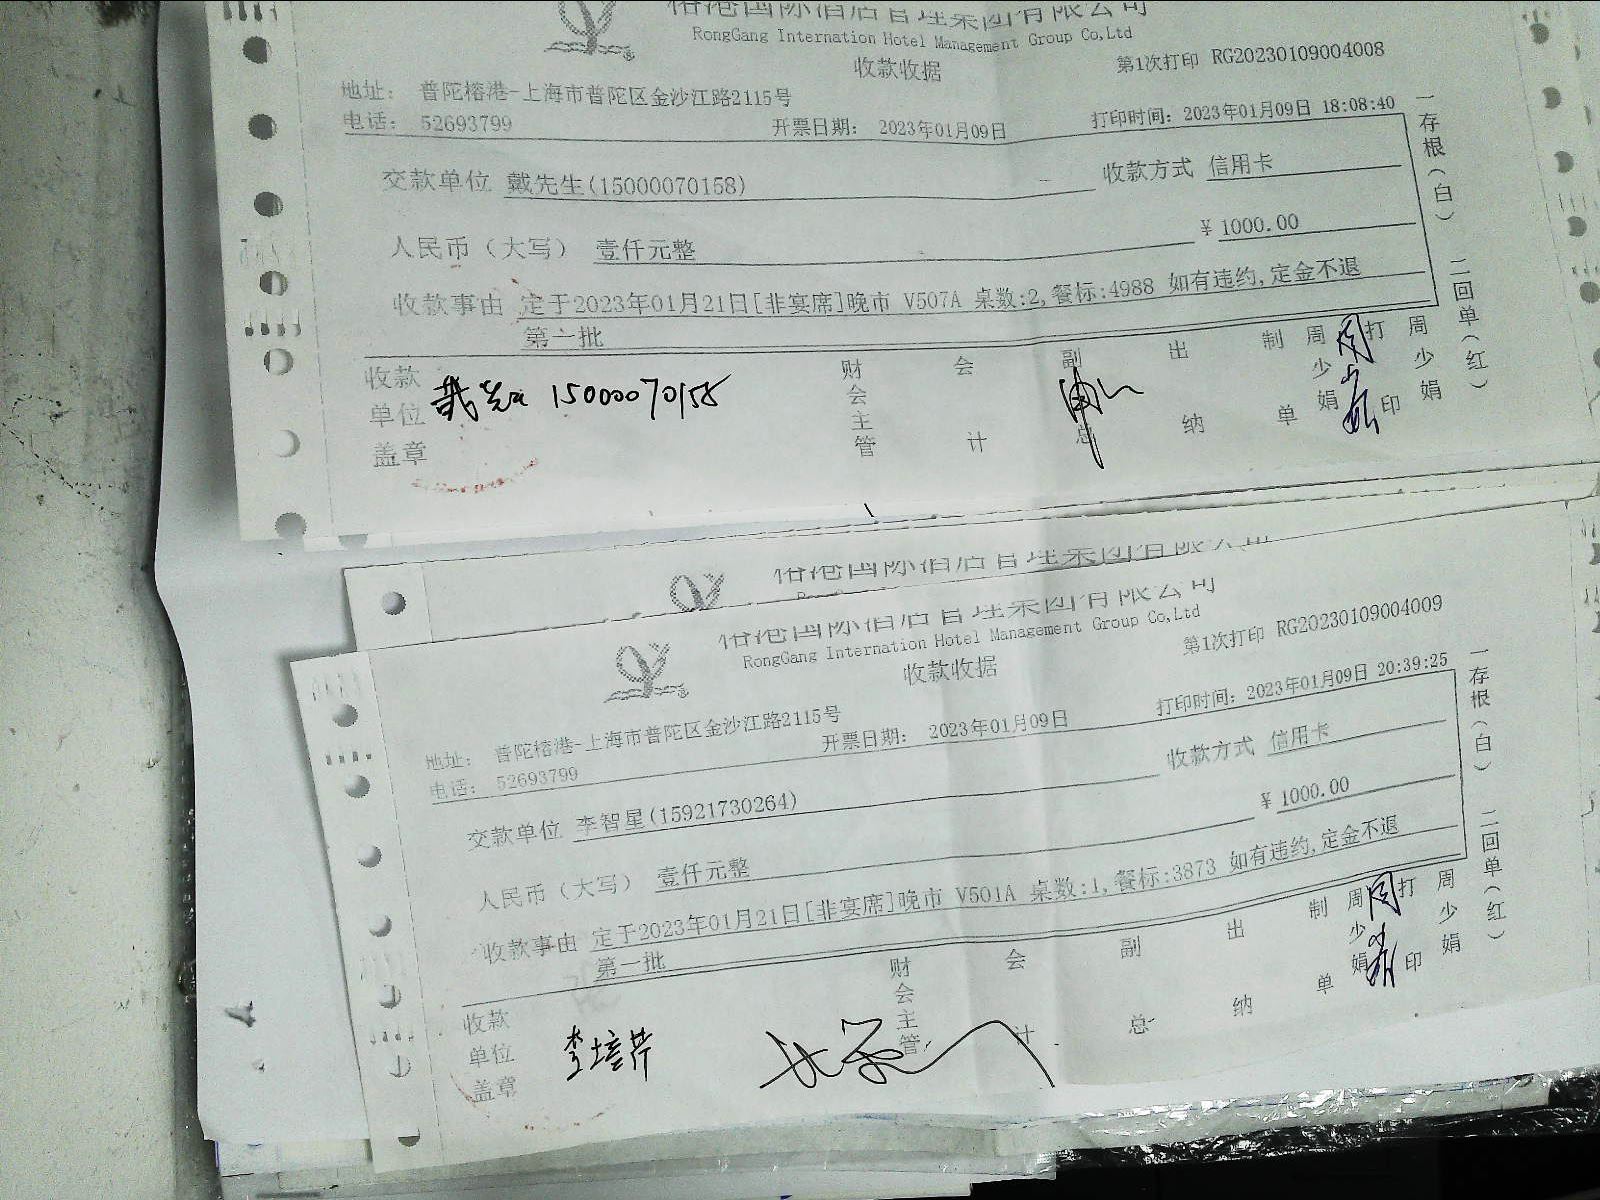 榕港国际酒店管理集团有限公司
RongGang Internation Hotel Management Group Co,Ltd
收款收据
第1次打印 RG20230109004008
地址： 普陀榕港-上海市普陀区金沙江路2115号
电话： 52693799
开票日期： 2023年01月09日
打印时间：2023年01月09日 18:08:40
交款单位 戴先生(15000070158)
收款方式 信用卡
人民币（大写） 壹仟元整
¥ 1000.00
收款事由 定于2023年01月21日[非宴席]晚市 V507A 桌数:2,餐标:4988 如有违约,定金不退
第一批
一存根(白) 二回单(红)
收款单位盖章
15000070158
财会主管
会计
副总
出纳
制单
周少娟
打印
周少娟
榕港国际酒店管理集团有限公司
榕港国际酒店管理集团有限公司
RongGang Internation Hotel Management Group Co,Ltd
收款收据
第1次打印 RG20230109004009
地址： 普陀榕港-上海市普陀区金沙江路2115号
电话： 52693799
开票日期： 2023年01月09日
打印时间：2023年01月09日 20:39:25
交款单位 李智星(15921730264)
收款方式 信用卡
人民币（大写） 壹仟元整
¥ 1000.00
收款事由 定于2023年01月21日[非宴席]晚市 V501A 桌数:1,餐标:3873 如有违约,定金不退
第一批
一存根(白) 二回单(红)
收款单位盖章
李培芹
财会主管
会计
副总
出纳
制单
周少娟
打印
周少娟